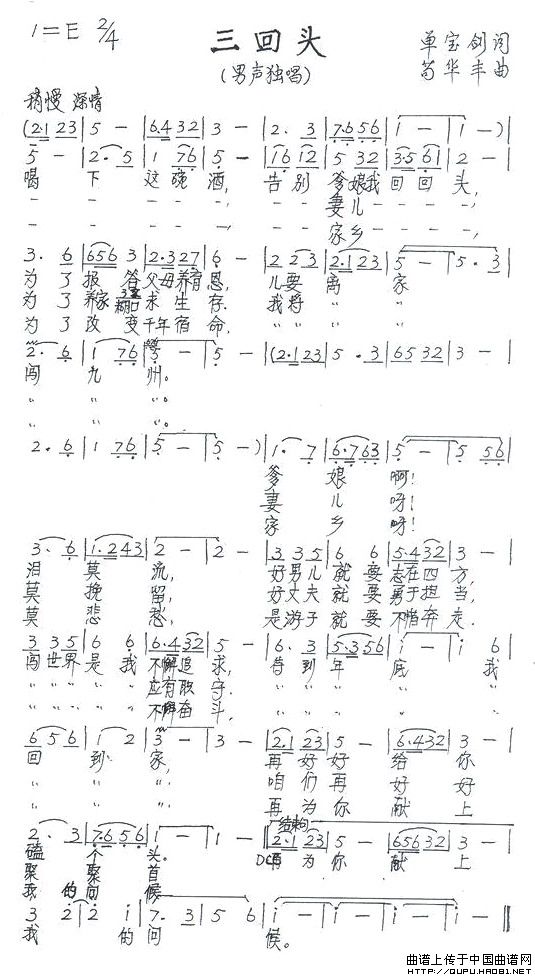 1=E 2/4
三回头
(男声独唱)
单宝剑 词
苟华丰 曲
稍慢 深情
(2·1 23 | 5 - | 6·4 32 | 3 - | 2· 3 | 7·6 56 | 1 - | 1 - )|
5 - | 2· 5 | 1 76 | 5 - | 16 12 | 5 32 | 3·5 61 | 2 - |
喝 下 这碗 酒, 告别 爹娘我 回回 头,
- - - - - - 妻儿 - - - -,
- - - - - - 家乡 - - - -,
3· 6 | 656 3 | 2·3 27 | 6 - | 2 23 | 2·1 23 | 5 - | 5· 3 |
为了 报答 父母养育 恩, 儿要 离 家
为了 养家糊口 求生 存. 我将 〃 〃
为了 改变 千年宿 命, 〃 〃 〃
2· 6 | 1 76 | 5 - | 5 - | (2·1 23 | 5 ·3 | 65 32 | 3 - |
闯 九 州。
〃 〃 〃。
〃 〃 〃。
2· 6 | 1 76 | 5 - | 5 - )| 1· 7 | 6·763 | 5 - | 5 56 |
爹 娘 啊!
妻 儿 呀!
家 乡 呀!
3· 6 | 1·243 | 2 - | 2 - | 3 35 | 6 6 | 5·432 | 3 - |
泪 莫 流, 好男儿 就要 志在四 方,
莫 挽 留, 好丈夫 就要 勇于担 当,
莫 悲 愁, 是游子 就要 不惜奔 走.
3 35 | 6 6 | 6·432 | 5 - | 6· 3 | 5·356 | i - | i 6 |
闯世界 是我 不懈追 求, 等到 年 底 我
〃 〃 〃 〃 〃 应有职 守. 〃 〃 〃 〃 〃
〃 〃 〃 〃 〃 不懈奋 斗, 〃 〃 〃 〃 〃
6 5 6 | 1 2 | 3 - | 3 - | 2·1 23 | 5 - | 6·432 | 3 - |
回 到 家, 再好 好 给 你
〃 〃 〃, 咱们 再 好 好
〃 〃 〃, 再为 你 献 上
结束句
2· 3 | 7·656 | 1 - | 1 - || 2·1 23 | 5 - | 65632 | 3 - |
磕 个 头。 D.C. 再为 你 献 上
聚 聚 首
我 的问 候
3 2 | 2 i | 7· 3 | 5 6 | i - | i - | i - | i - ||
我 的问 候。
曲谱上传于中国曲谱网
HTTP://QUPU.HAO81.NET